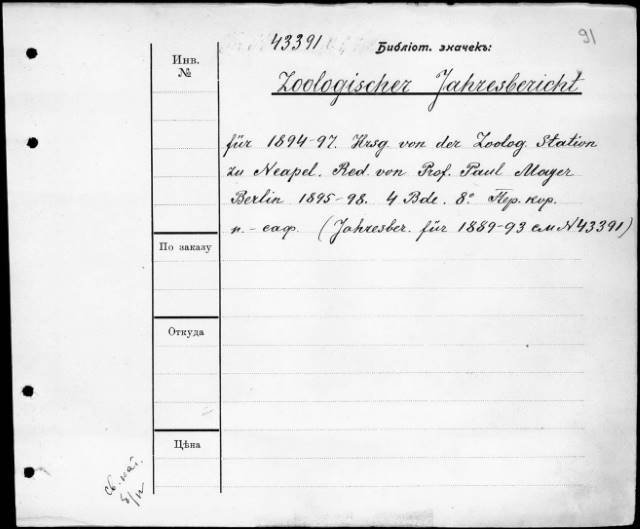 43391 Библіот. значекъ: 91
Инв.
№
Zoologischer Jahresbericht
für 1894-97. Hrsg von der Zoolog. Station
zu Neapel. Red. von Prof. Paul Mayer
Berlin 1895-98. 4 Bde. 8° Пер. кор.
п.- саф. (Jahresber. für 1889-93 см N 43391)
По заказу
Откуда
Цѣна